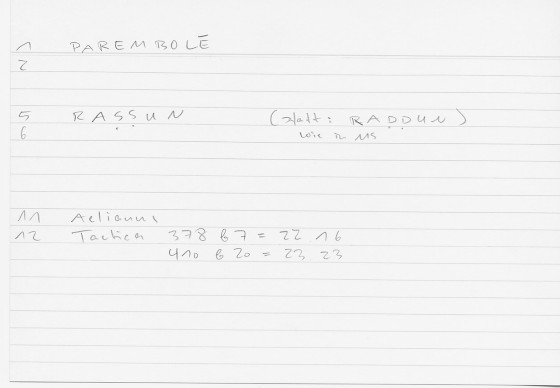 1 PAREMBOLĒ
2
5 RAṢṢUN (statt: RAḌḌUN)
6 wie in MS
11 Aelianus
12 Tactica 378 b 7 = 22 16
410 b 20 = 23 23